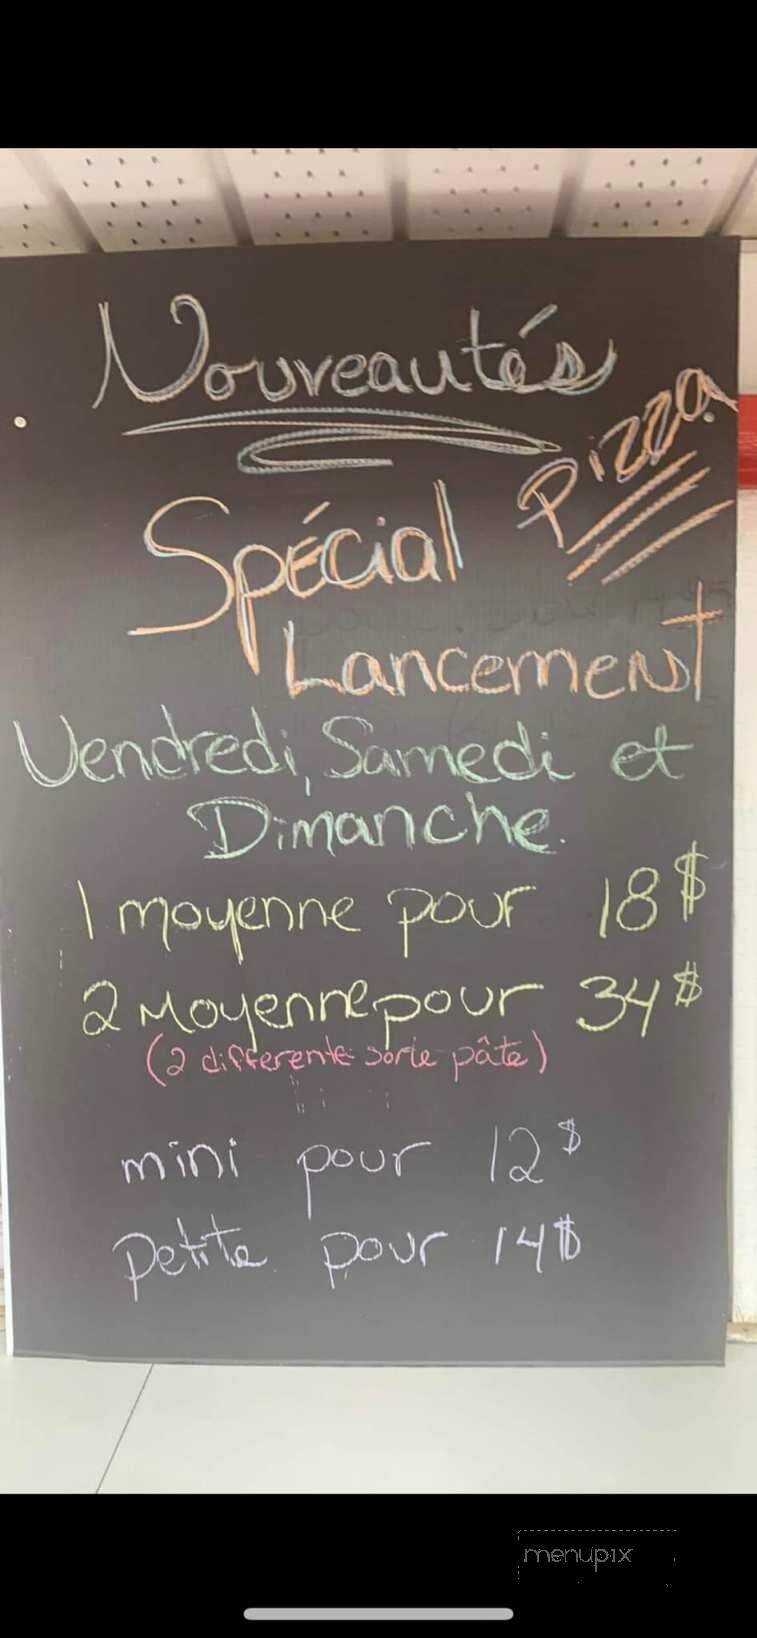 Nouveautés
Pizza
Spécial
Lancement
Vendredi, Samedi et
Dimanche.
1 moyenne pour 18$
2 moyenne pour 34$
(2 differente sorte pâte)
mini pour 12$
petite pour 14$
menupix